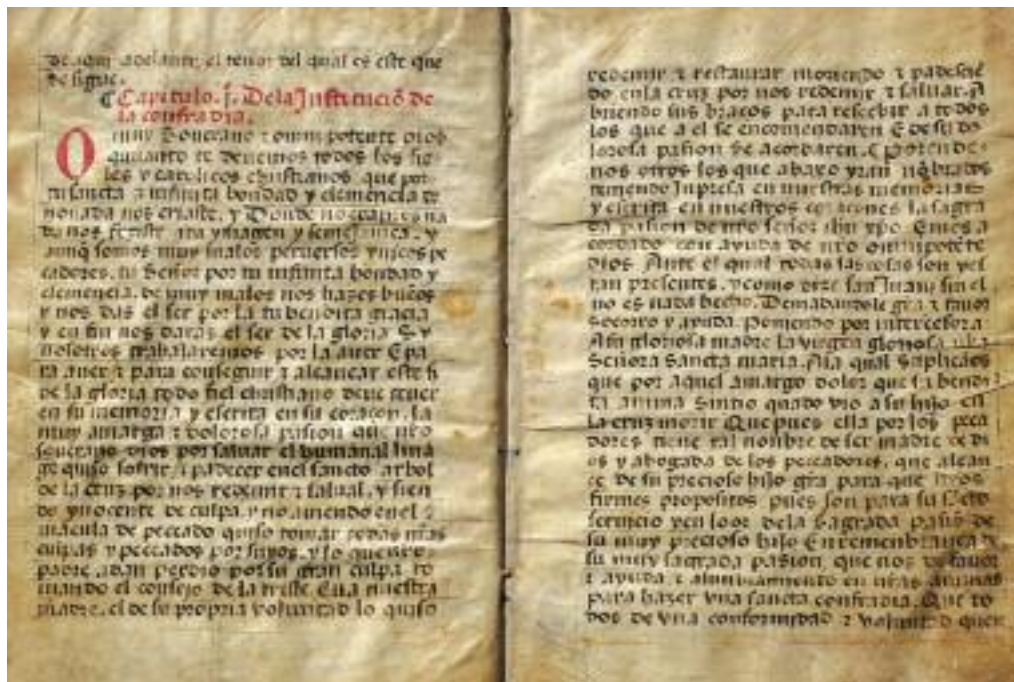 de aqui adelante, el tenor del qual es este que
se sigue.
¶ Capitulo. j. De la Institució de
la confradia.
O muy Soberano τ omnipotente dios
quanto te deuemos todos los fie
les y catolicos christianos que por
tu sancta τ infinita bondad y clemencia de
nonada nos criaste. y Donde no eramos na
da nos feziste a tu ymagen y semejança. y
aunq̃ somos muy malos peruersos y
cadores. tu Señor por tu infinita bondad y
clemencia. de muy malos nos hazes buẽos
y nos das el ser por la tu bendita gracia
y en fin nos daras el ser de la gloria
nosotros trabajaremos por la auer E pa
ra auer τ para conseguir τ alcançar este fi
de la gloria todo fiel christiano deue tener
en su memoria y escrita en su coraçon. la
muy amarga τ dolorosa pasion que nřo
soberano dios por saluar el humanal lina
ge quiso sofrir τ padecer enel sancto arbol
de la cruz por nos redemir τ saluar. y sien
do ynocente de culpa. y no auiendo en el
macula de peccado quiso tomar todas nřas
culpas y peccados por suyos. y lo que nřo
padre adan perdio por su gran culpa to
mando el consejo de la triste Eua nuestra
madre. el de su propria voluntad lo quiso
redemir τ restaurar moriendo τ padescié
do en la cruz por nos redemir τ saluar. A
briendo sus braços para rescebir a todos
los que a el se encomendaren E de su do
lorosa pasion se acordaren. E por ende
nos otros los que abaxo yran nõbrados
teniendo Inpresa en nuestras memorias
y escrita en nuestros coraçones la sagra
da pasion de nřo señor ihu xpo Emos a
cordado con ayuda de nřo omnipotẽte
dios Ante el qual todas las cosas son
presentes. y como dize san Juan sin el
no es nada hecho. Demandandole gřa τ fauor
socorro y ayuda. Poniendo por intercesora
A su gloriosa madre la virgẽ gloriosa
Señora Sancta maria. A la qual Suplicãos
que por aquel amargo dolor que su bendi
ta anima Sintio quãdo vio a su hijo en
la cruz morir Que pues ella por los peca
dores tiene tal nombre de ser madre de di
os y abogada de los peccadores. que alcan
ce de su precioso hijo gřa para que nřos
firmes propositos pues son para su sãcto
seruicio y en loor de la Sagrada pasiõ de
su muy precioso hijo E en remembrança de
su muy sagrada pasion, que nos de fauor
τ ayuda τ alumbramiento en nřas animas
para hazer vna sancta confradia. Que to
dos de vna conformidad τ voluntad